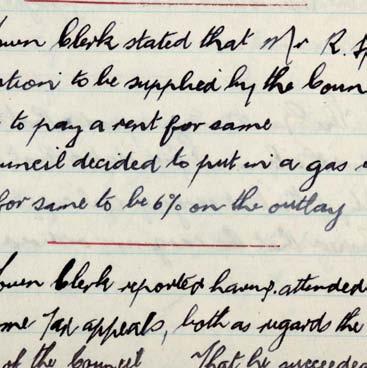 own Clerk stated that Mr R. Sp
ation to be supplied by the Coun
to pay a rent for same
ouncil decided to put in a gas
for same to be 6% on the outlay
own Clerk reported having attended
me Tax appeals, both as regards the
of the Council That he succeeded